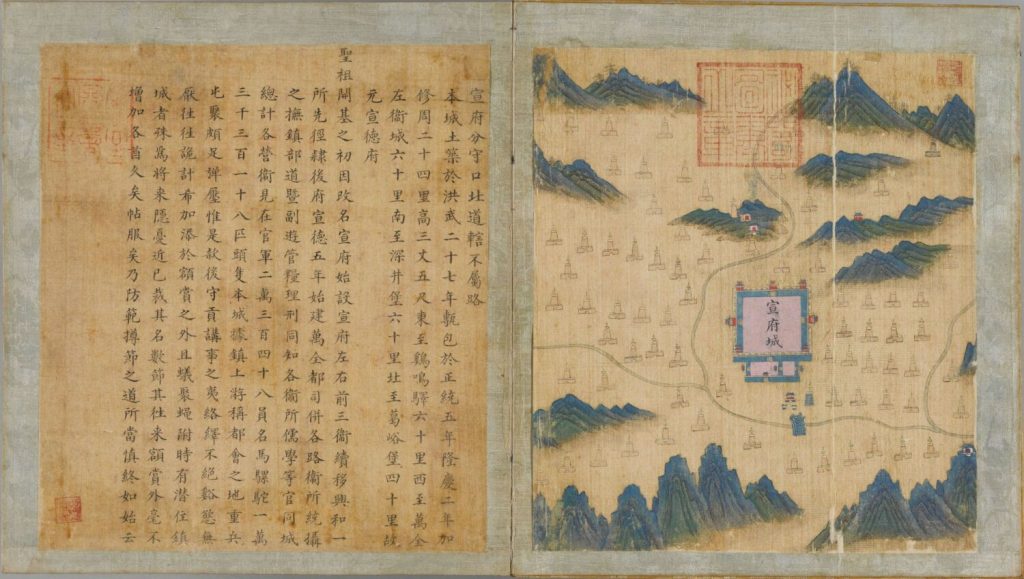 宣府分守口北道轄不屬路
本城土築於洪武二十七年甎包於正統五年隆慶二年加
修周二十四里高三丈五尺東至鷄鳴驛六十里西至萬全
左衛城六十里南至深井堡六十里北至葛峪堡四十里故
元宣德府
聖祖開基之初因改名宣府始設宣府左右前三衛續移興和一
所先徑隸後府宣德五年始建萬全都司併各路衛所統攝
之撫鎮部道暨副遊管糧理刑同知各衛所儒學等官同城
總計各營衛見在官軍二萬三百四十八員名馬騾駝一萬
三千三百一十八匹頭隻本城據鎮上將稱都會之地重兵
屯聚頗足彈壓惟是款後守貢講事之夷絡繹不絕谿慾無
厭往往詭計希加添於額賞之外且蟻聚蠅附時有潛住鎮
城者殊為將來隱憂近已裁其名數節其往來額賞外毫不
增加各酋久矣帖服矣乃防範撙節之道所當慎終如始云
宣府城